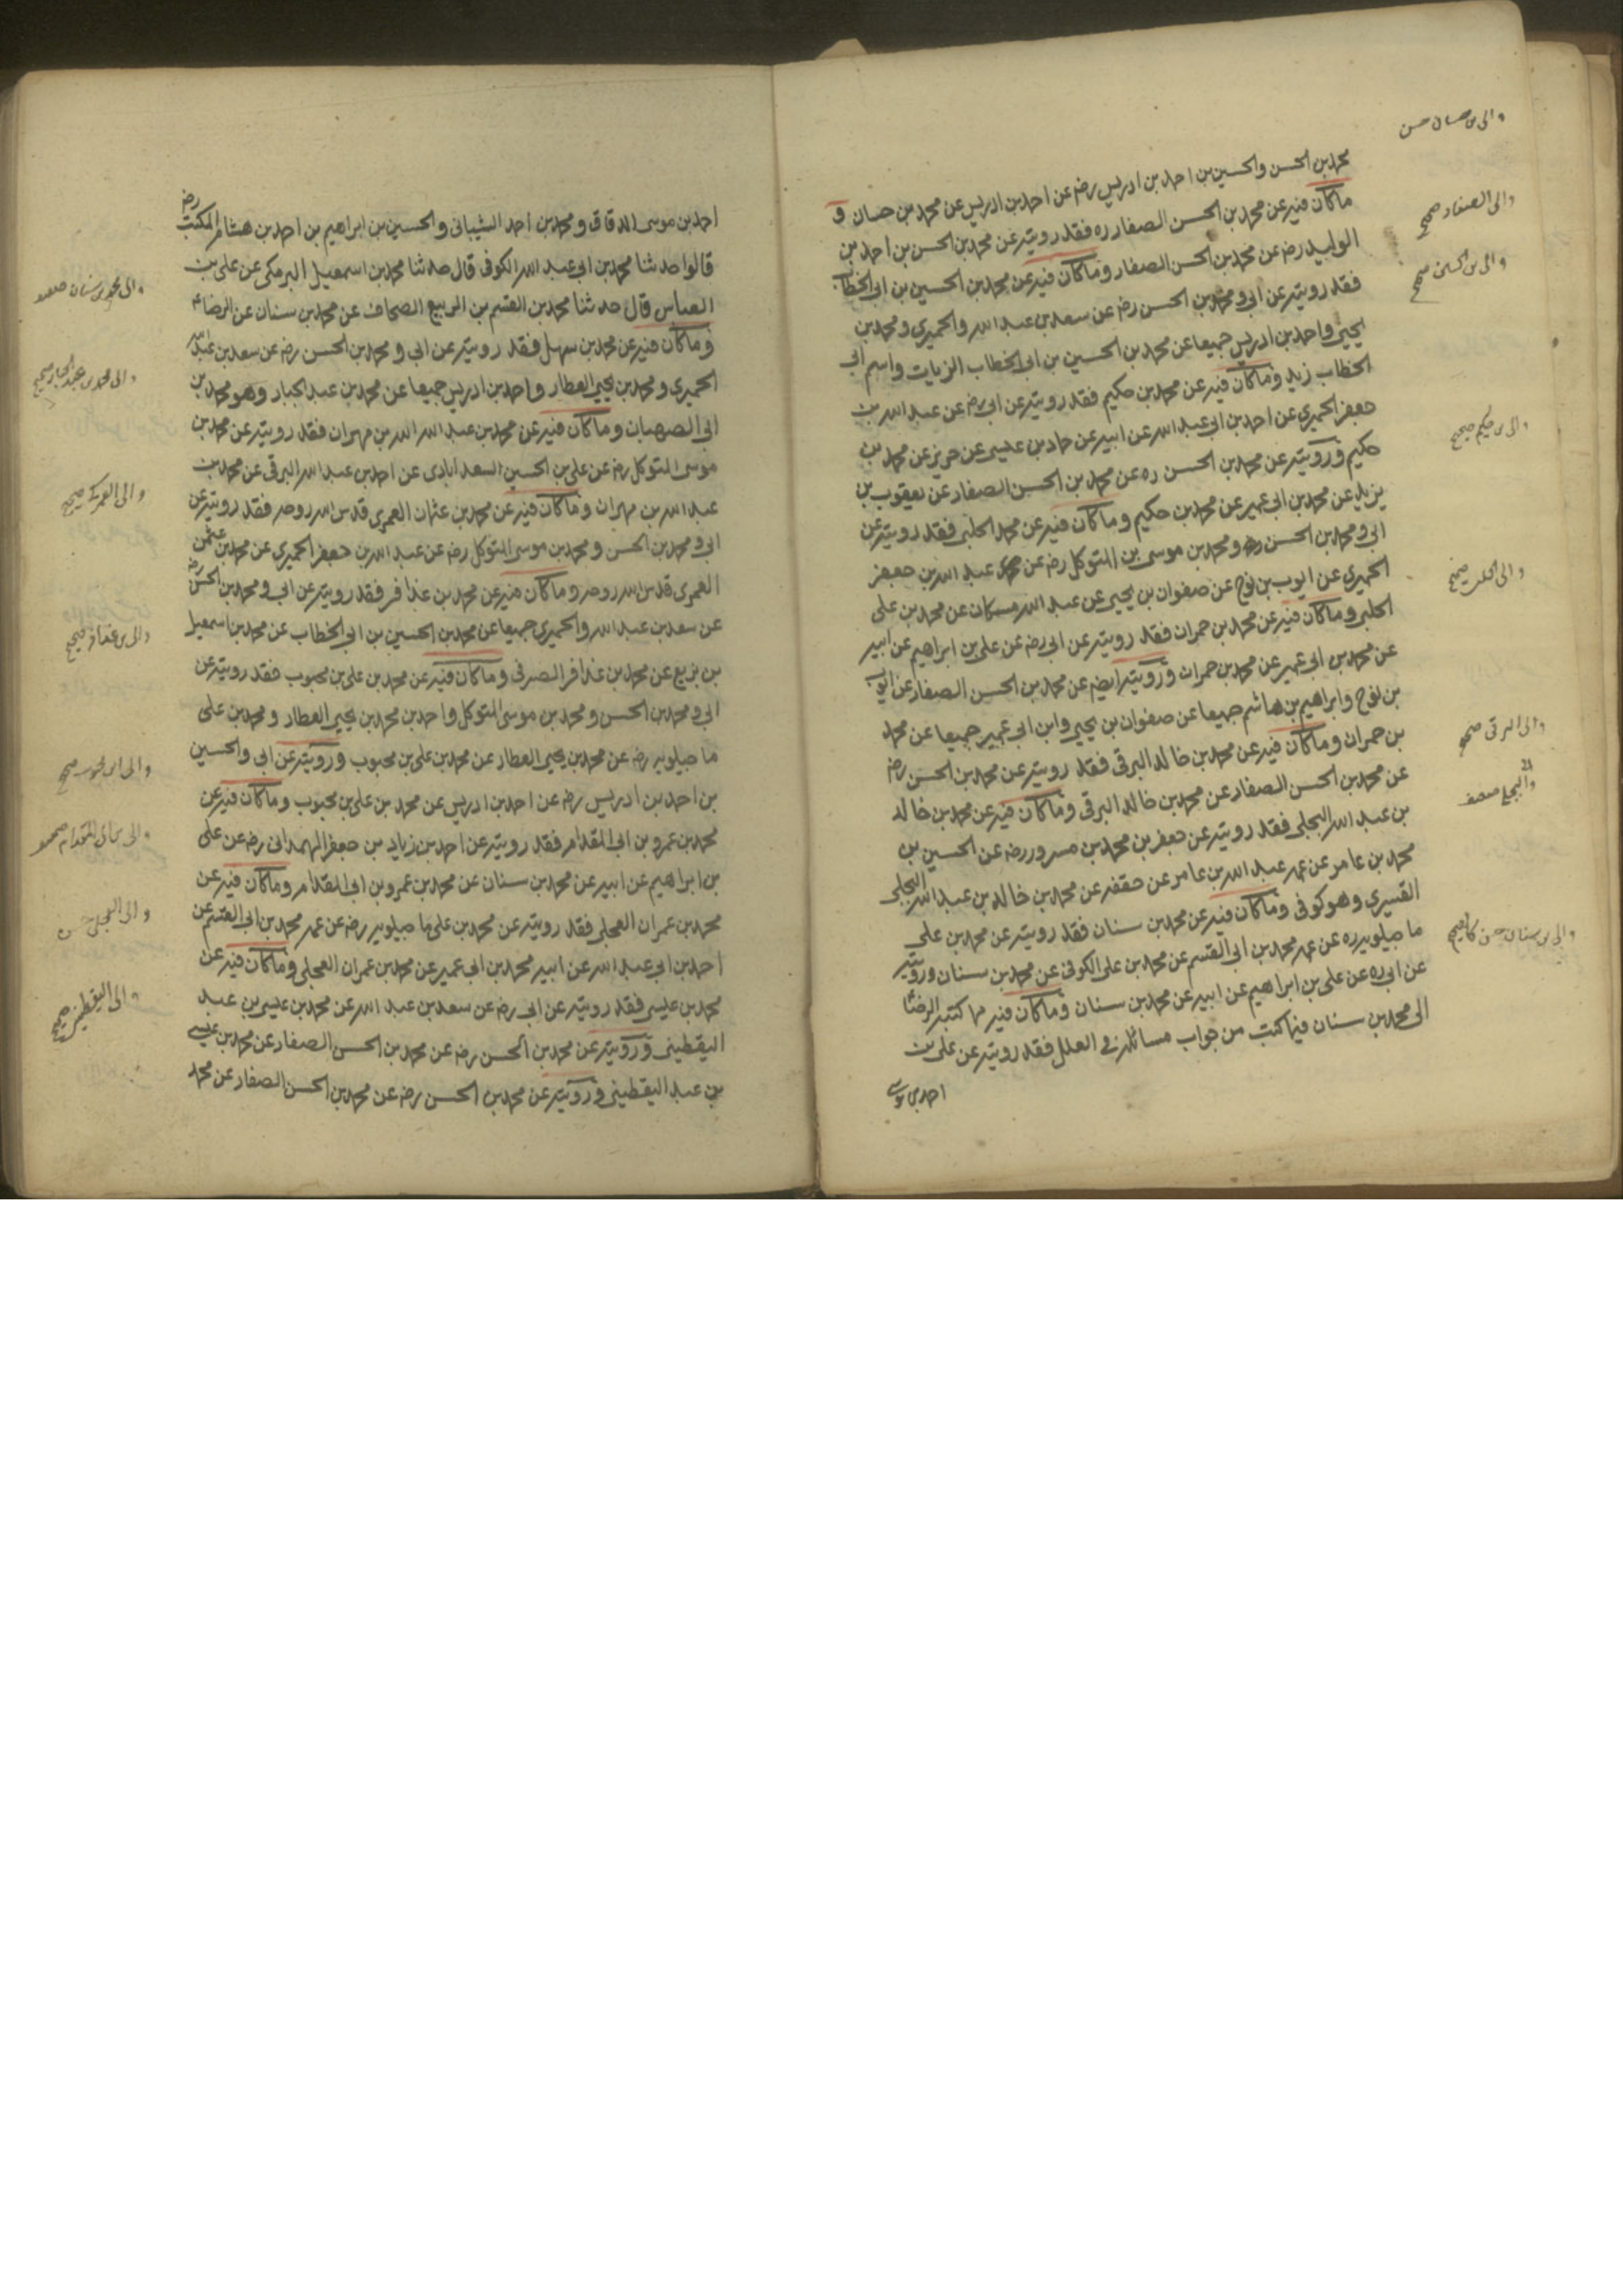 محمد بن الحسن والحسين بن احمد بن ادريس رضه عن احمد بن ادريس عن محمد بن حسان و
ماكان فيه عن محمد بن الحسن الصفار ره فقد رويته عن محمد بن الحسن بن احمد بن
الوليد رضه عن محمد بن الحسن الصفار وماكان فيه عن محمد بن الحسين بن ابى الخطاب
فقد رويته عن ابى ومحمد بن الحسن رضه عن سعد بن عبد الله والحميري ومحمد بن
يحيى واحمد بن ادريس جميعا عن محمد بن الحسين بن ابى الخطاب الزيات واسم ابى
الخطاب زيد وماكان فيه عن محمد بن حكيم فقد رويته عن ابى رضه عن عبد الله بن
جعفر الحميرى عن احمد بن ابى عبد الله عن ابيه عن حماد بن عيسى عن حريز عن محمد بن
حكيم ورويته عن محمد بن الحسن ره عن محمد بن الحسن الصفار عن يعقوب بن
يزيد عن محمد بن ابى عمير عن محمد بن حكيم وماكان فيه عن محمد الحلبى فقد رويته عن
ابى ومحمد بن الحسن ومحمد بن موسى بن المتوكل رضه عن عبد الله بن جعفر
الحميرى عن ايوب بن نوح عن صفوان بن يحيى عن عبد الله مسكان عن محمد بن على
الحلبى وماكان فيه عن محمد بن حمران فقد رويته عن ابى رضه عن على بن ابراهيم عن ابيه
عن محمد بن ابى عمير عن محمد بن حمران ورويته ايضه عن محمد بن الحسن الصفار عن ايوب
بن نوح وابراهيم بن هاشم جميعا عن صفوان بن يحيى وابن ابى عمير جميعا عن محمد
بن حمران وماكان فيه عن محمد بن خالد البرقى فقد رويته عن محمد بن الحسن رضه
عن محمد بن الحسن الصفار عن محمد بن خالد البرقى وماكان فيه عن محمد بن خالد
بن عبد الله البجلى فقد رويته عن جعفر بن محمد بن مسرور رضه عن الحسين بن
محمد بن عامر عن عمه عبد الله بن عامر عن محمد بن خالد بن عبد الله البجلى
القسري وهو كوفى وماكان فيه عن محمد بن سنان فقد رويته عن محمد بن على
ماجيلويه ره عن عمه محمد بن ابى القسم عن محمد بن على الكوفى عن محمد بن سنان ورويته
عن ابى ره عن على بن ابراهيم عن ابيه عن محمد بن سنان وماكان فيه مما كتبه الرضا
الى محمد بن سنان فيما كتب من جواب مسائله فى العلل فقد رويته عن على بن
احمد بن موسى
والى بن حسان حسن
والى الصفار صحيح
والى بن الحسين صحيح
والى بن حكيم صحيح
والى الحلبى صحيح
والى البرقى صحيح
والى البجلى ضعيف
والى بن سنان
احمد بن موسى الدقاق ومحمد بن احمد الشيبانى والحسين بن ابراهيم بن احمد بن هشام المكتب رضه
قالوا حدثنا محمد بن ابى عبد الله الكوفى قال حدثنا محمد بن اسمعيل البرمكى عن على بن
العباس قال حدثنا محمد بن القسم بن الربيع الصحاف عن محمد بن سنان عن الرضا
وماكان فيه عن محمد بن سهل فقد رويته عن ابى ومحمد بن الحسن رضه عن سعد بن عبد الله
الحميري ومحمد بن يحيى العطار واحمد بن ادريس جميعا عن محمد بن عبد الجبار وهو محمد بن
ابى الصهبان وماكان فيه عن محمد بن عبد الله بن مهران فقد رويته عن محمد بن
موسى المتوكل رضه عن على بن الحسين السعدابادى عن احمد بن عبد الله البرقى عن محمد بن
عبد الله بن مهران وماكان فيه عن محمد بن عثمان العمرى قدس الله روحه فقد رويته عن
ابى ومحمد بن الحسن ومحمد بن موسى المتوكل رضه عن عبد الله بن جعفر الحميري عن محمد بن عثمن
العمرى قدس الله روحه وماكان فيه عن محمد بن عذافر فقد رويته عن ابى ومحمد بن الحسن رضه
عن سعد بن عبد الله والحميرى جميعا عن محمد بن الحسين بن ابى الخطاب عن محمد بن اسمعيل
بن بزيع عن محمد بن عذافر الصيرفى وماكان فيه عن محمد بن على بن محبوب فقد رويته عن
ابى ومحمد بن الحسن ومحمد بن موسى المتوكل واحمد بن محمد بن يحيى العطار ومحمد بن على
ماجيلويه رضه عن محمد بن يحيى العطار عن محمد بن على بن محبوب ورويته عن ابى والحسين
بن احمد بن ادريس رضه عن احمد بن ادريس عن محمد بن على بن محبوب وماكان فيه عن
محمد بن عمرو بن ابى المقدام فقد رويته عن احمد بن زياد بن جعفر الهمدانى رضه عن على
بن ابراهيم عن ابيه عن محمد بن سنان عن محمد بن عمرو بن ابى المقدام وماكان فيه عن
محمد بن عمران العجلى فقد رويته عن محمد بن على ماجيلويه رضه عن عمه محمد بن ابى القسم عن
احمد بن ابى عبد الله عن ابيه محمد بن ابى عمير عن محمد بن عمران العجلى وماكان فيه عن
محمد بن عيسى فقد رويته عن ابى رضه عن سعد بن عبد الله عن محمد بن عيسى بن عبيد
اليقطينى ورويته عن محمد بن الحسن رضه عن محمد بن الحسن الصفار عن محمد بن عيسى
بن عبيد اليقطينى ورويته عن محمد بن الحسن رضه عن محمد بن الحسن الصفار عن محمد
والى محمد بن سنان ضعيف
والى محمد بن عبد الجبار صحيح
والى العمرى صحيح
والى بن عذافر صحيح
والى ابن محبوب صحيح
والى بن ابى المقدام
والى العجلى حسن
والى اليقطينى صحيح